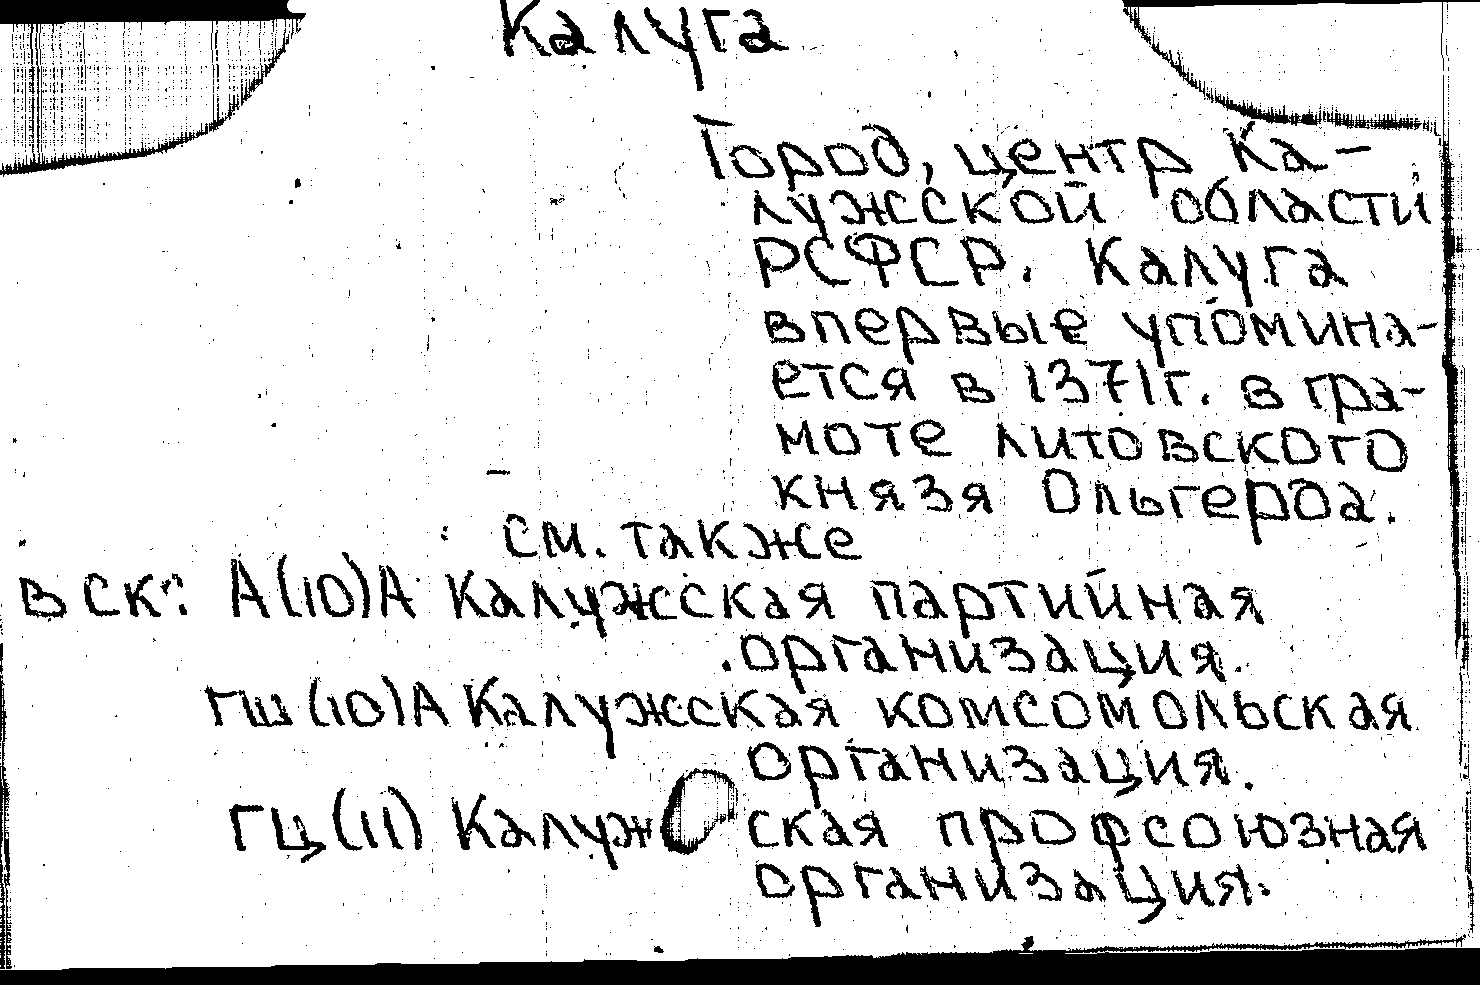 Калуга
Город, центр Ка-
лужской области
РСФСР. Калуга
впервые упомина-
ется в 1371г. в гра-
моте литовского
князя Ольгерда.
см. также
в СК: А(10)А Калужская партийная
организация.
ГШ(10)А Калужская комсомольская
организация.
ГЦ(11) Калужская профсоюзная
организация.